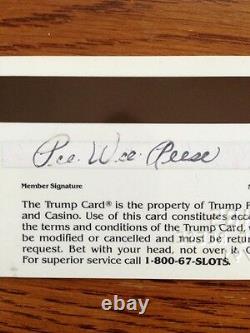 Pee Wee Reese
Member Signature
The Trump Card® is the property of Trump P
and Casino. Use of this card constitutes acc
the terms and conditions of the Trump Card.
be modified or cancelled and must be retur
request. Bet with your head, not over it. G
For superior service call 1-800-67-SLOTS.